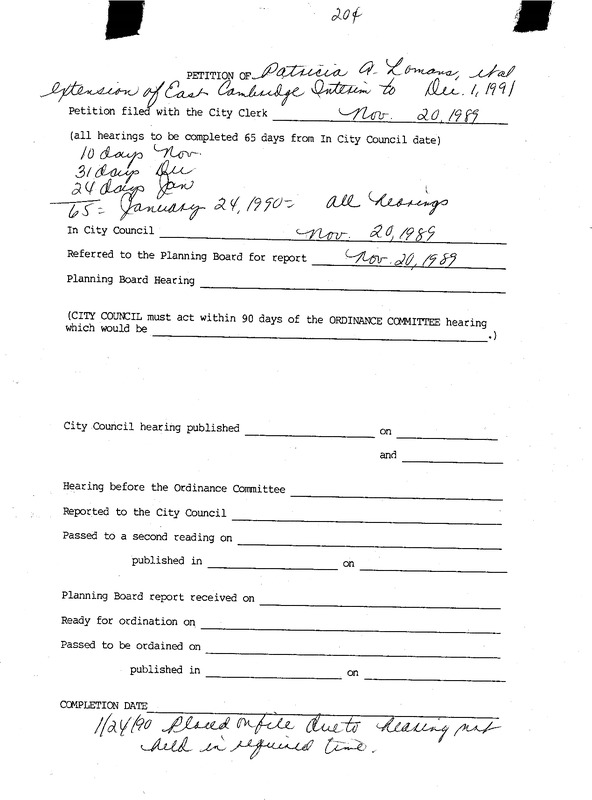 20¢
PETITION OF Patricia A. Lomans, et al
extension of East Cambridge Interim to Dec. 1, 1991
Petition filed with the City Clerk Nov. 20, 1989
(all hearings to be completed 65 days from In City Council date)
10 days Nov.
31 days Dec
24 days Jan
65 = January 24, 1990 = all hearings
In City Council Nov. 20, 1989
Referred to the Planning Board for report Nov. 20, 1989
Planning Board Hearing
(CITY COUNCIL must act within 90 days of the ORDINANCE COMMITTEE hearing
which would be .)
City Council hearing published on
and
Hearing before the Ordinance Committee
Reported to the City Council
Passed to a second reading on
published in on
Planning Board report received on
Ready for ordination on
Passed to be ordained on
published in on
COMPLETION DATE
1/24/90 Placed on file due to hearing not
held in required time.